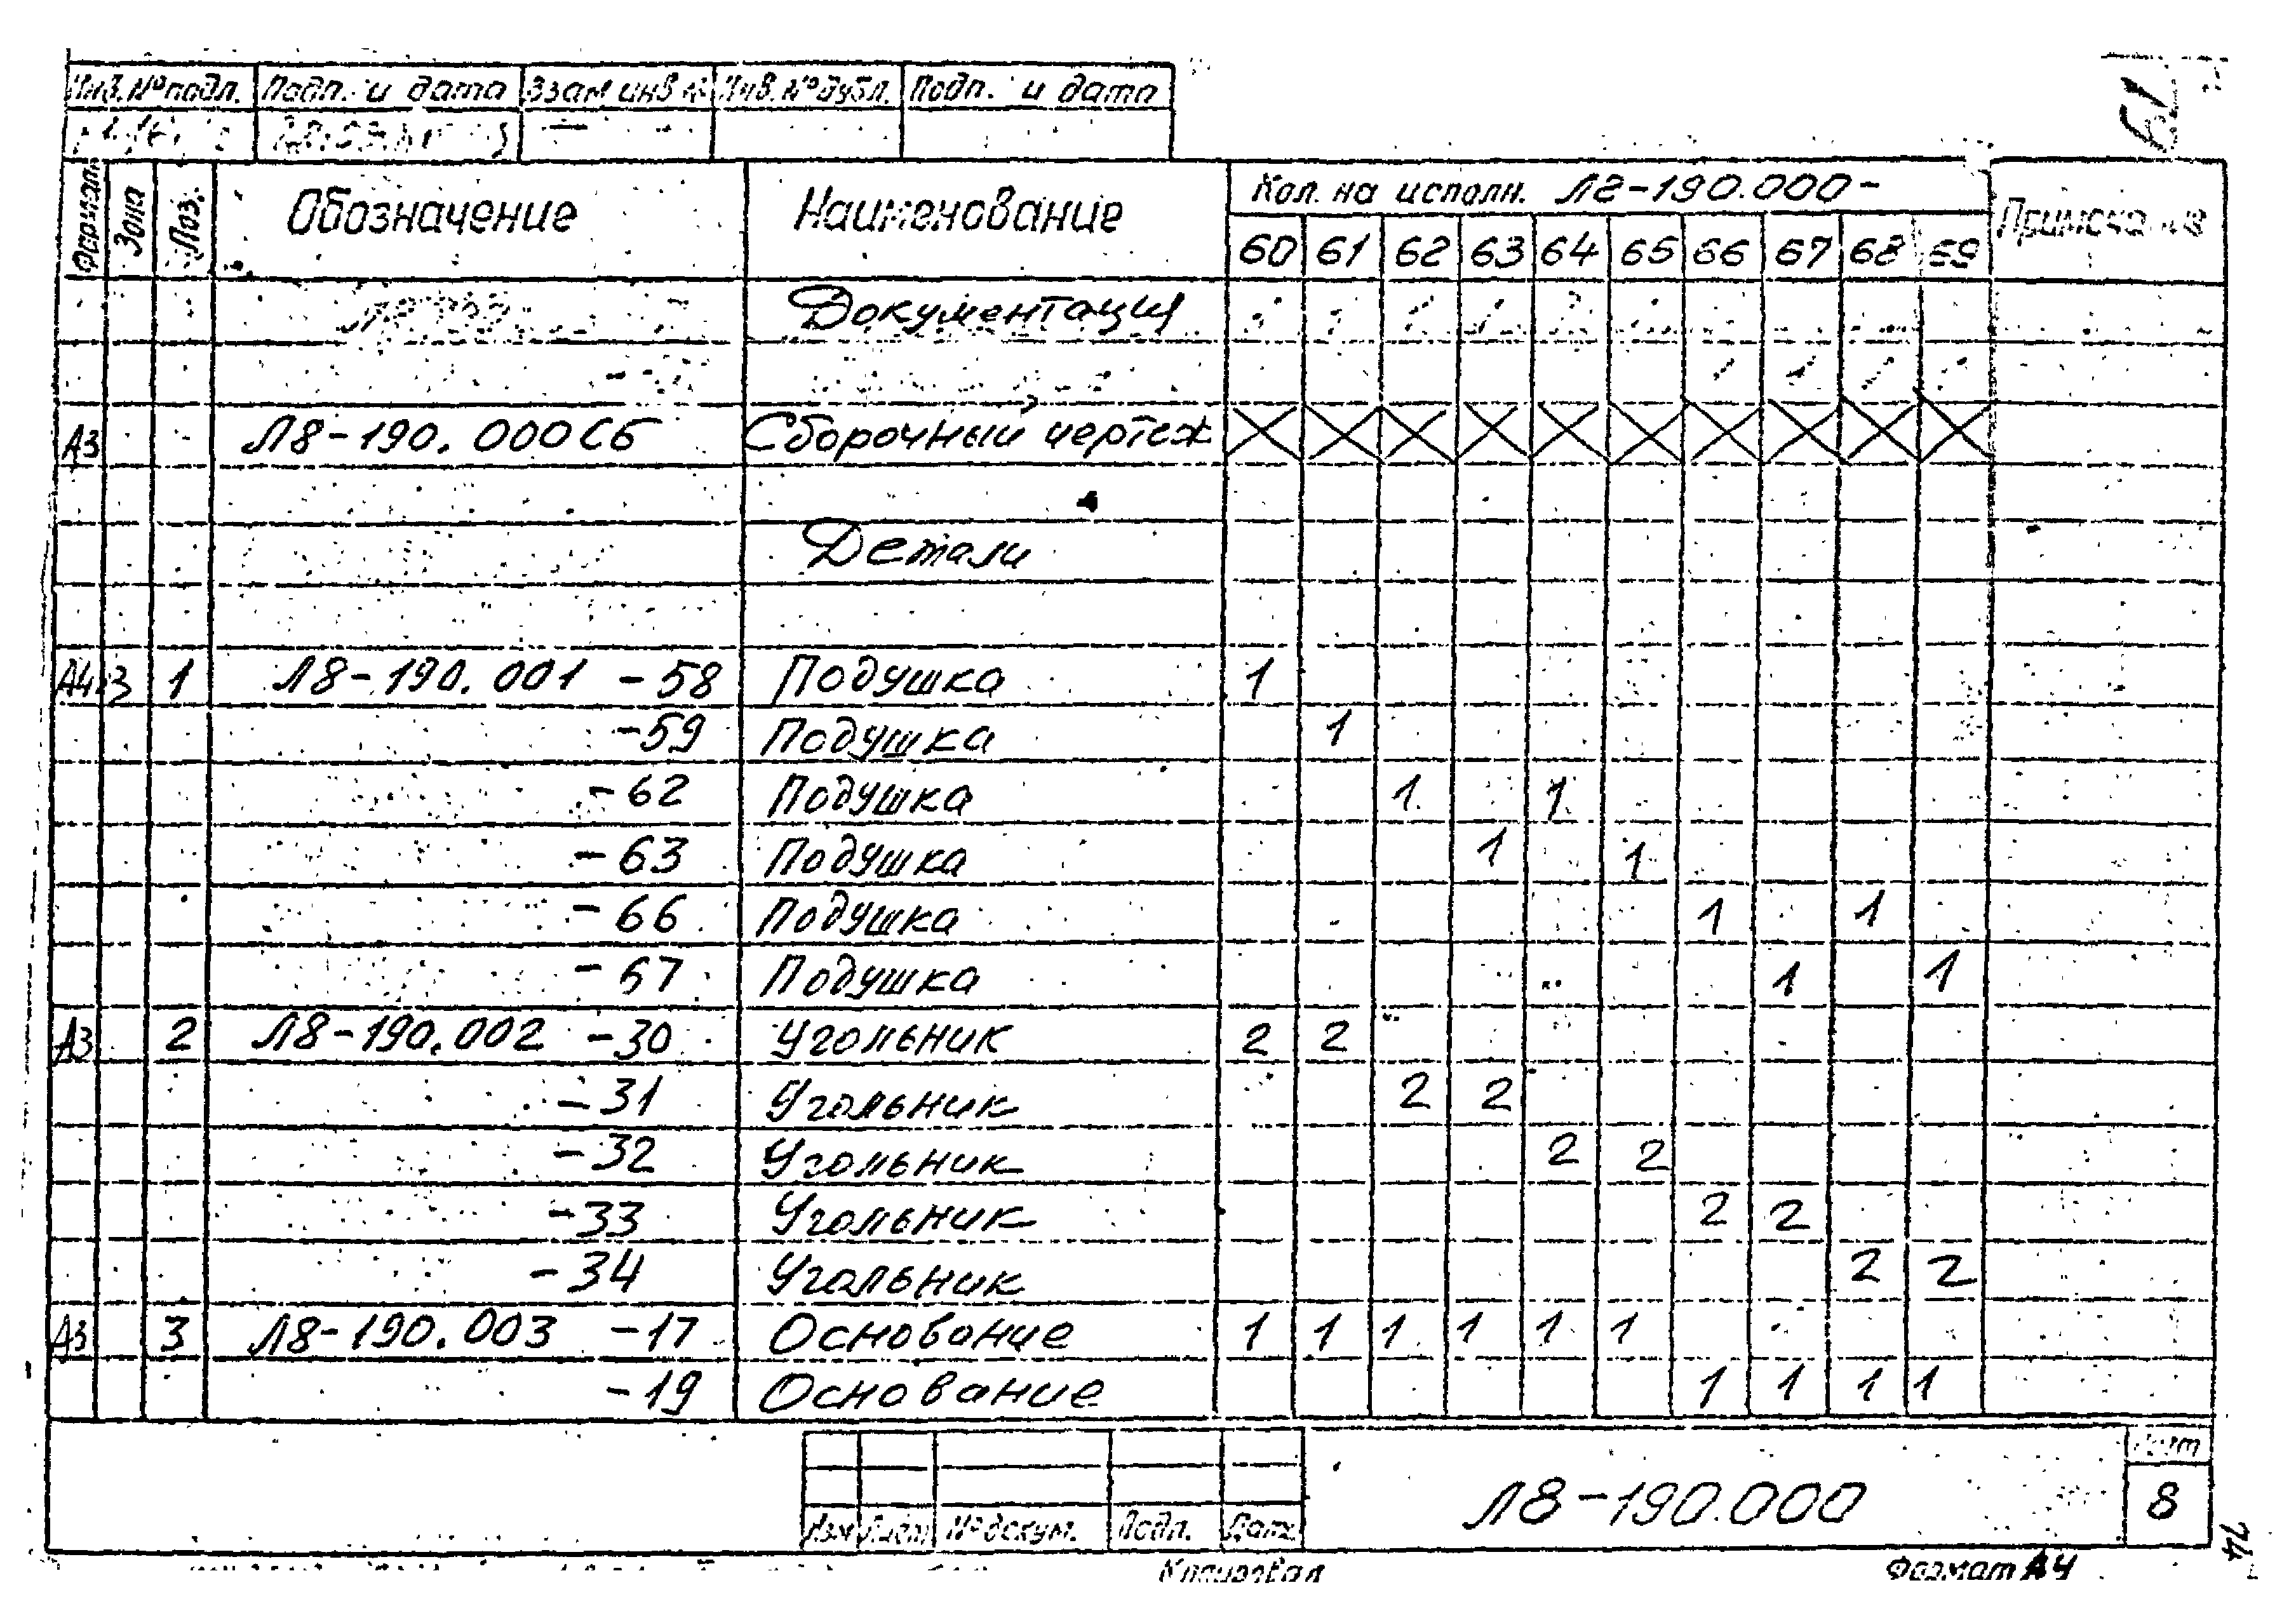 Инв. № подл. Подп. и дата Взам инв № Инв. № дубл. Подп. и дата
61
Формат Зона Поз. Обозначение Наименование Кол. на исполн. Л8-190.000- Примечание
60 61 62 63 64 65 66 67 68 69
Документация
А3 Л8-190.000СБ Сборочный чертеж
Детали
А4х3 1 Л8-190.001 -58 Подушка 1
-59 Подушка 1
-62 Подушка 1 1
-63 Подушка 1 1
-66 Подушка 1 1
-67 Подушка 1 1
А3 2 Л8-190.002 -30 Угольник 2 2
-31 Угольник 2 2
-32 Угольник 2 2
-33 Угольник 2 2
-34 Угольник 2 2
А3 3 Л8-190.003 -17 Основание 1 1 1 1 1 1
-19 Основание 1 1 1 1
Изм Лист № докум. Подп. Дата
Л8-190.000
Лист
8
74
Копировал Формат А4